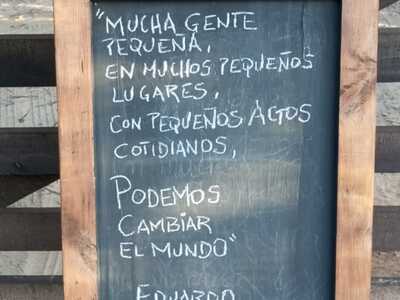 "MUCHA GENTE
PEQUEÑA,
EN MUCHOS PEQUEÑOS
LUGARES,
CON PEQUEÑOS ACTOS
COTIDIANOS,
PODEMOS
CAMBIAR
EL MUNDO"
EDUARDO